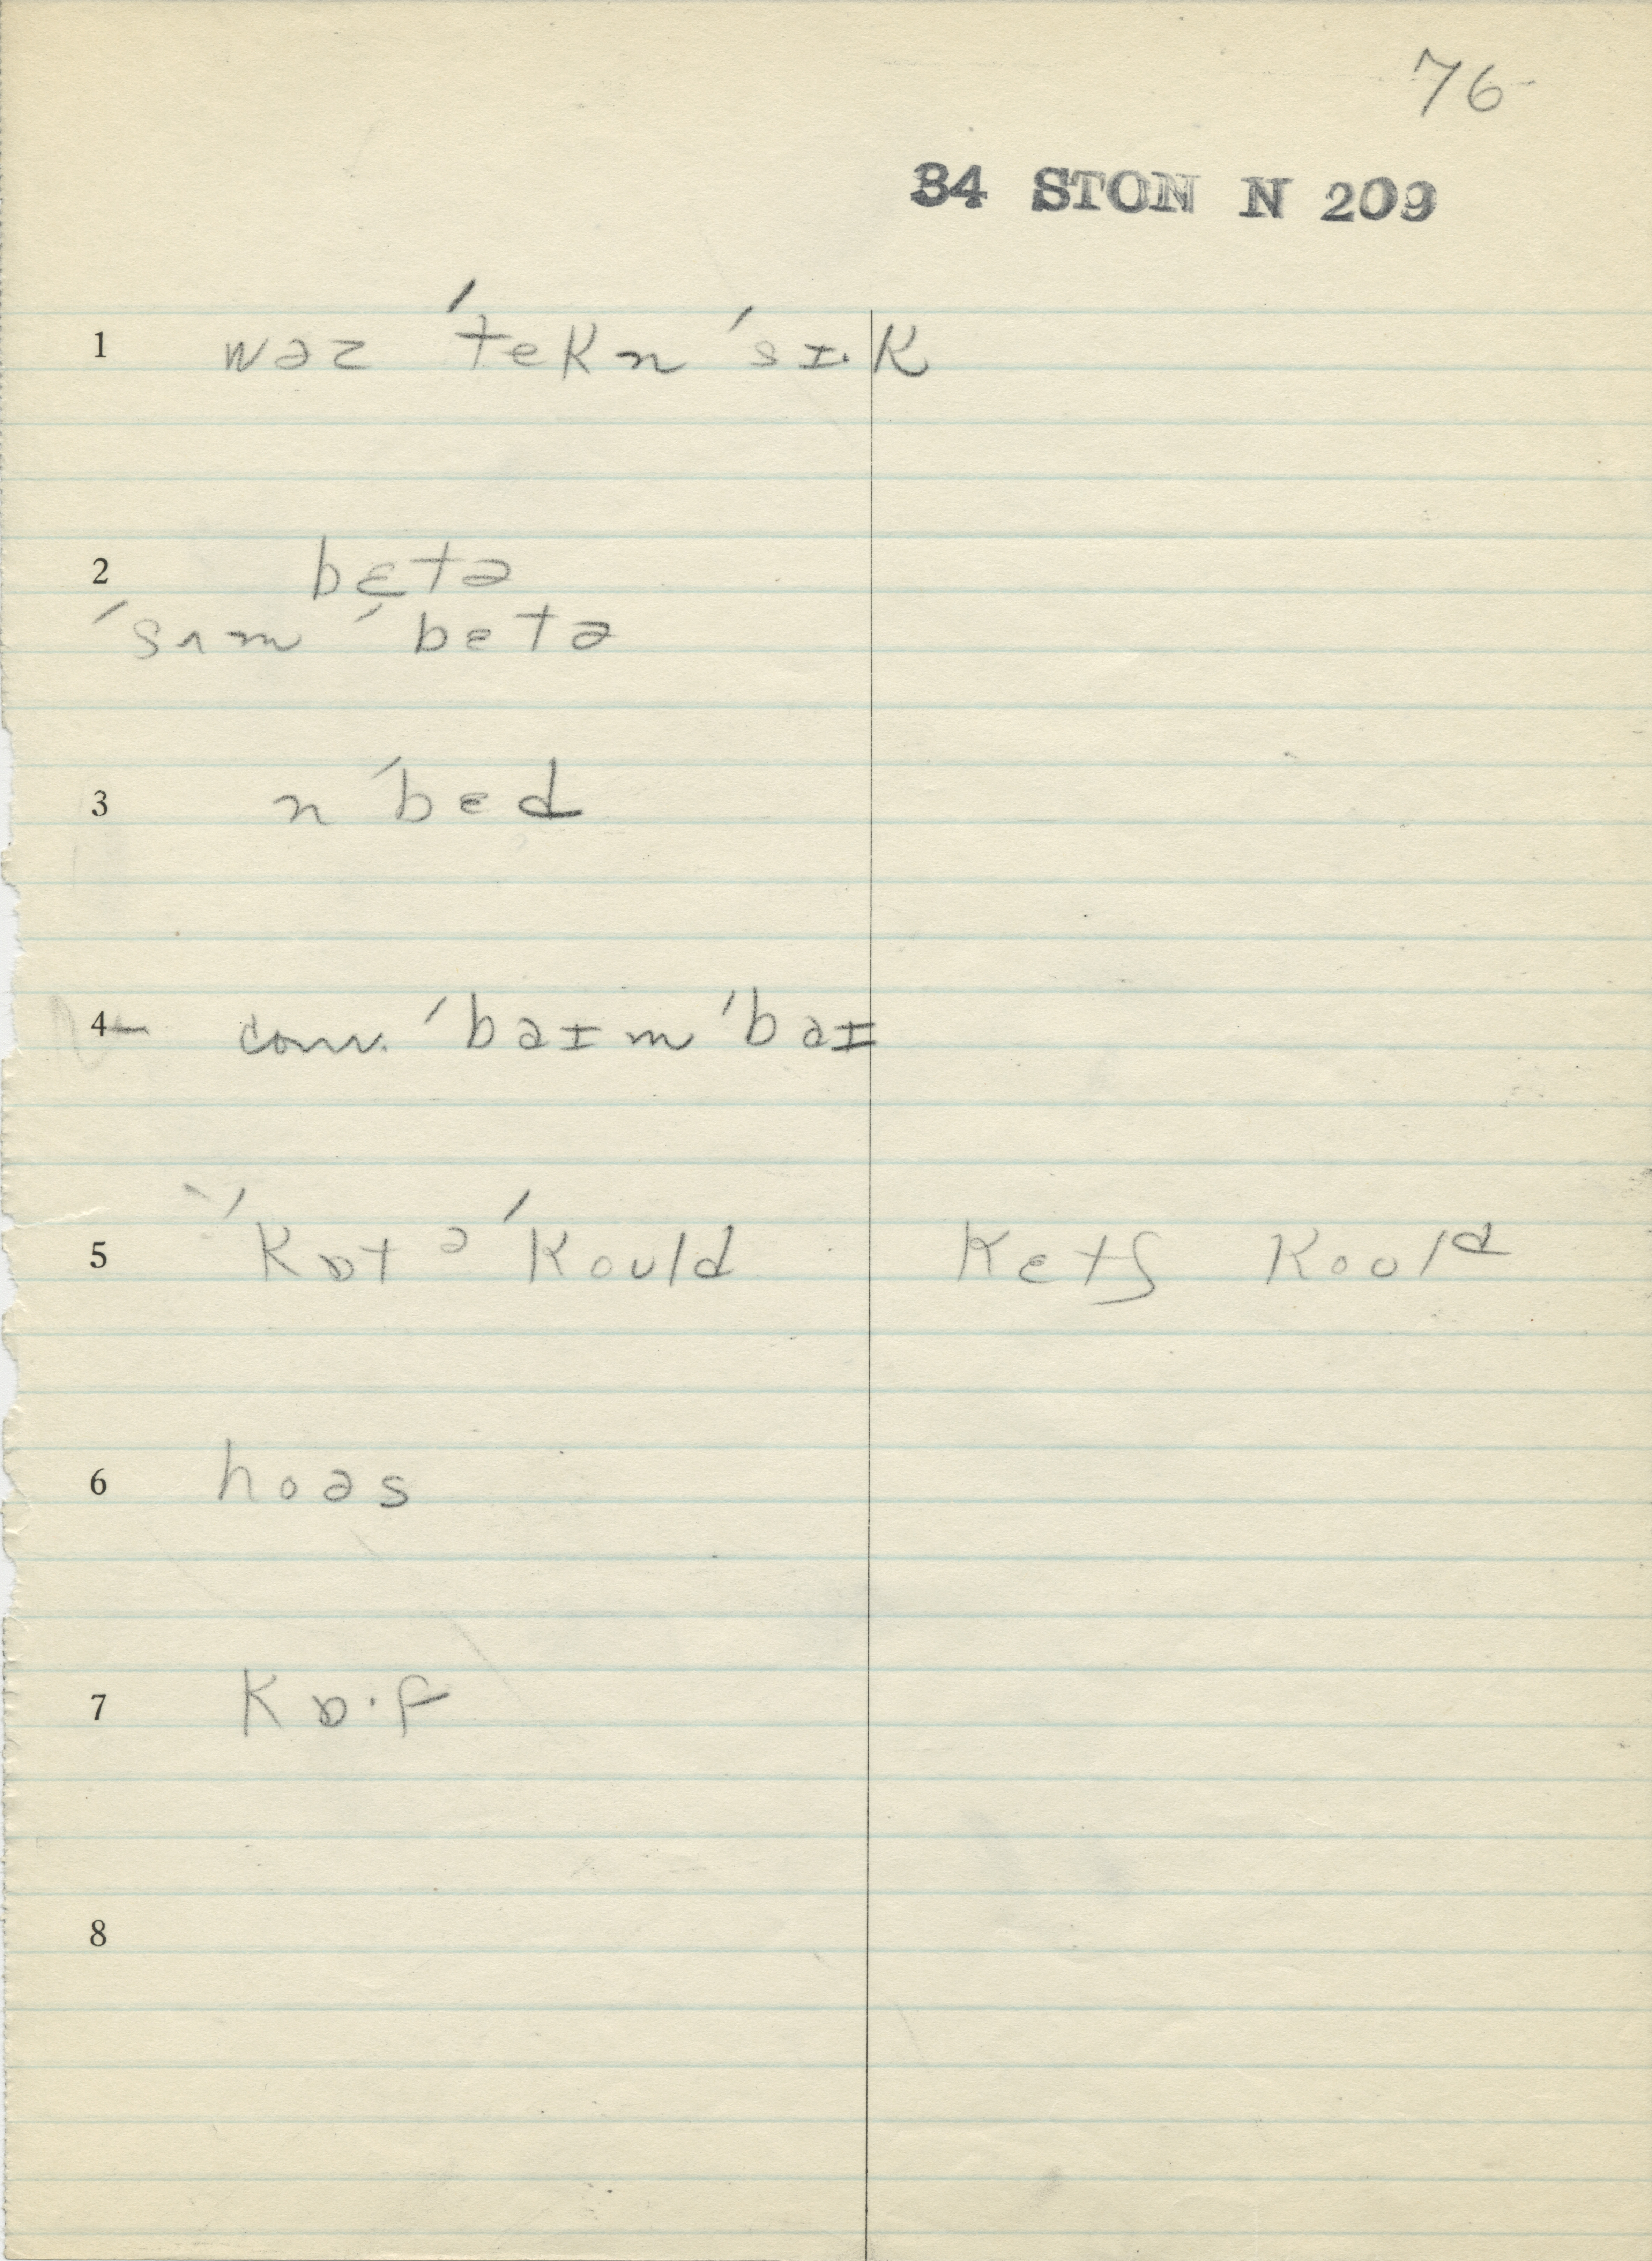 76
34 STON N 209
1 wəz ˈtekn ˈsɪ·k
2 bɛtə
ˈsʌm ˈbɛtə
3 n ˈbɛd
4 conv. ˈbaɪm ˈbaɪ
5 ˈkɒt ə ˈkould ketʃ koʊld
6 hoəs
7 kɒ·f
8